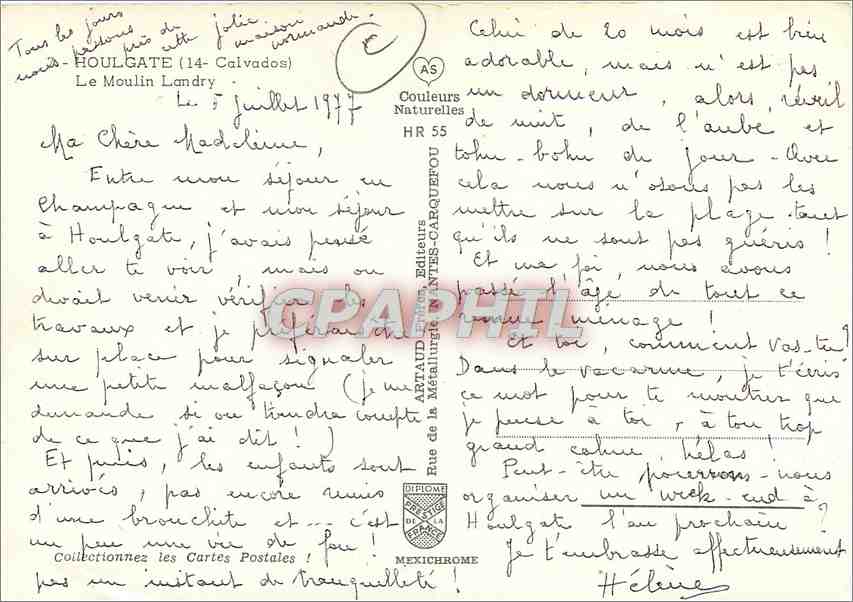 Tous les jours
nous passons près de cette jolie maison normande.
E
- HOULGATE (14- Calvados)
Le Moulin Landry
Le 5 juillet 1977
Ma Chère Madeleine,
Entre mon séjour en
Champagne et mon séjour
à Houlgate, j'avais pensé
aller te voir, mais on
devait venir vérifier les
travaux et je préférai être
sur place pour signaler
une petite malfaçon (je me
demande si on tiendra compte
de ce que j'ai dit !)
Et puis, les enfants sont
arrivés, pas encore remis
d'une bronchite et ... c'est
un peu une vie de fou !
Collectionnez les Cartes Postales !
pas un instant de tranquillité !
AS
Couleurs
Naturelles
HR 55
ARTAUD Frères, Editeurs
Rue de la Métallurgie, NANTES-CARQUEFOU
DIPLOME
PRESTIGE
DE LA
FRANCE
MEXICHROME
Celui de 20 mois est bien
adorable, mais n'est pas
un dormeur, alors, réveil
de nuit, de l'aube et
tohu-bohu du jour - Avec
cela nous n'osons pas les
mettre sur la plage tant
qu'ils ne sont pas guéris !
Et ma foi, nous avons
passé l'âge de tout ce
remue ménage !
Et toi, comment vas-tu ?
Dans le vacarme, je t'écris
ce mot pour te montrer que
je pense à toi, à ton trop
grand calme, hélas !
Peut-être pourrons-nous
organiser un week-end à
Houlgate l'an prochain ?
Je t'embrasse affectueusement
Hélène
CPAPHIL